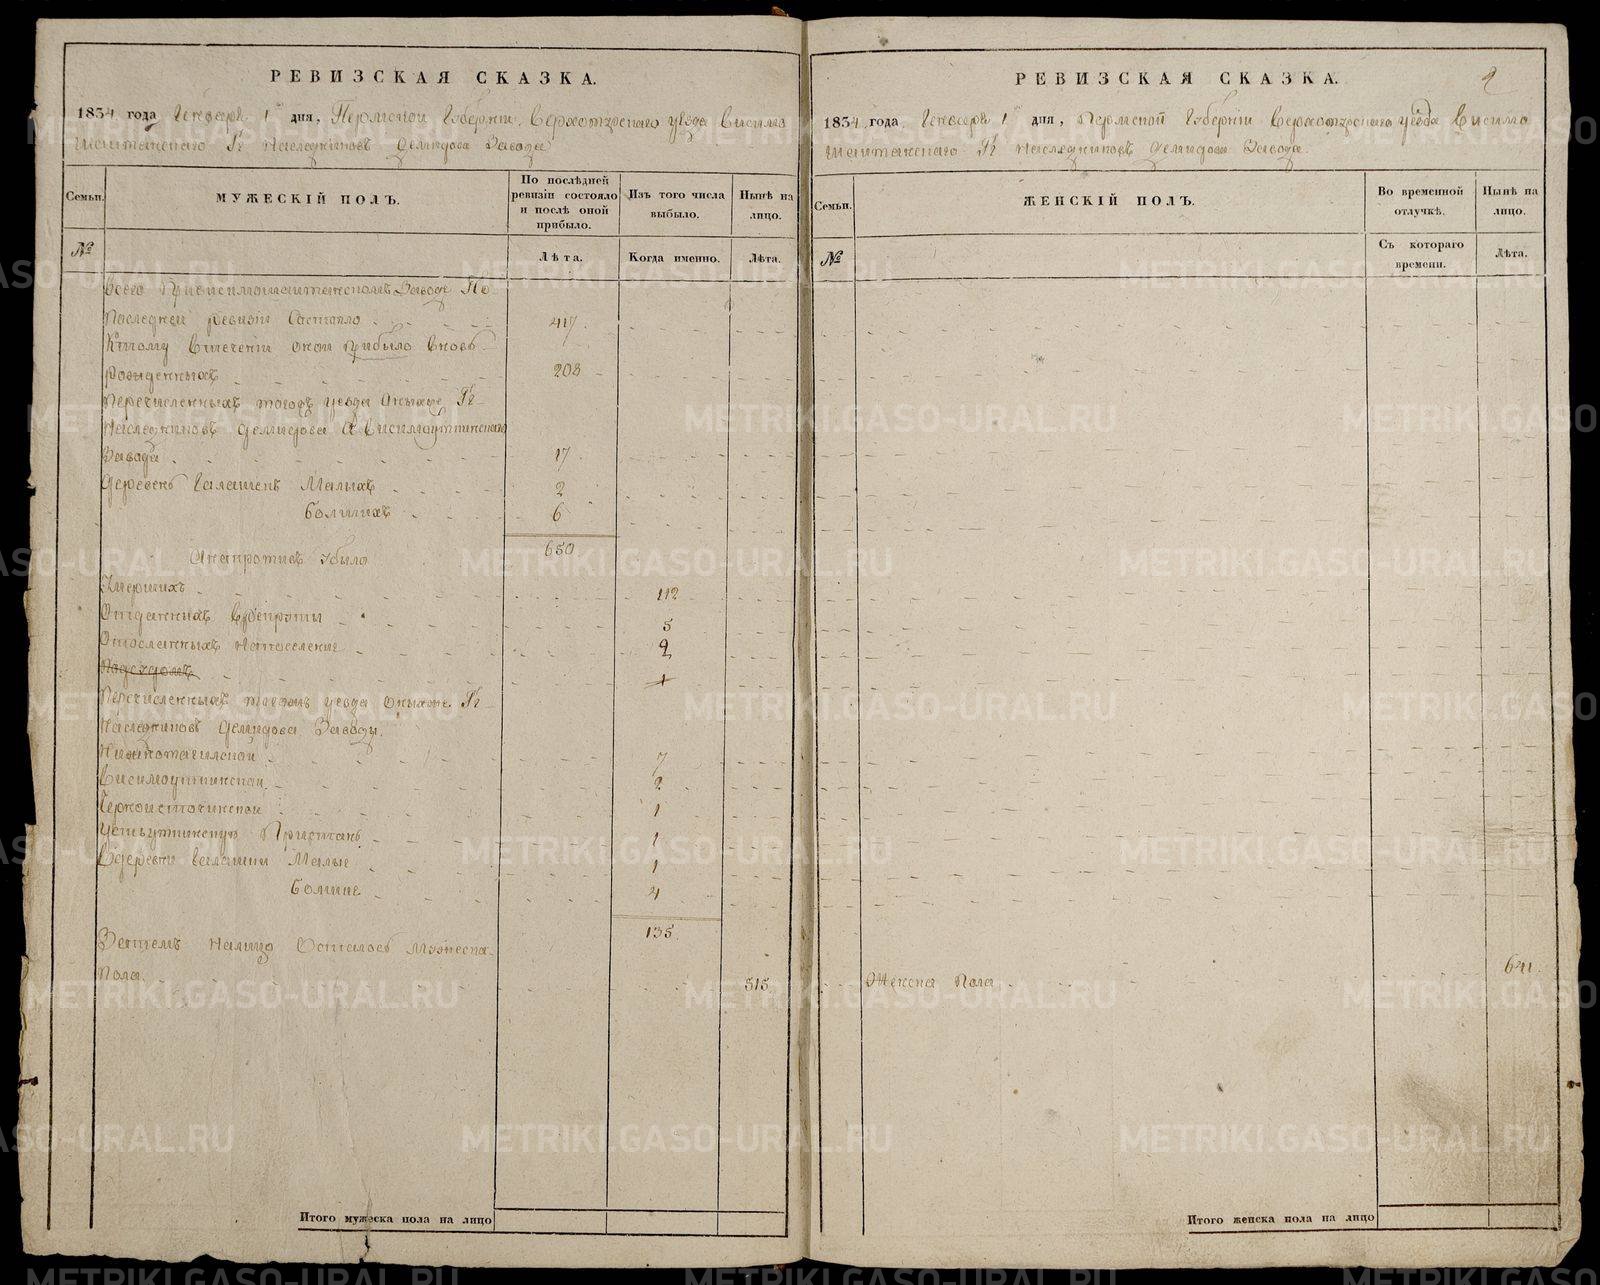 РЕВИЗСКАЯ СКАЗКА.
1834 года Генваря 1 дня, Пермской Губернии Верхотурского уезда Висимо
Шайтанского Гг Наследниковъ Демидова Завода
Семьи.
МУЖЕСКІЙ ПОЛЪ.
По послѣдней ревизіи состояло и послѣ оной прибыло.
Изъ того числа выбыло.
Нынѣ на лицо.
№
Лѣта.
Когда именно.
Лѣта.
Всего Завода По
Последней ревизіи Состояло 417
Ктому оной прибыло вновь
рожденныхъ 208
Перечисленныхъ тогожъ уезда Гг
Наследниковъ Демидова
Завода 17
деревень Галашекъ Малыхъ 2
Большихъ 6
650
Анапротивъ убыло
Умершихъ 112
Отданныхъ врекруты 5
Отосланныхъ напоселение 2
1
Перечисленныхъ уезда Гг
Наследниковъ Демидова Заводы
Нижнотагилской 7
Висимоуткинской 2
Черноисточинской 1
Устьуткинскую Пристань 1
Вдеревни Галашки Малые 1
Большие 4
135
Затемъ Налицо Осталось Мужеска
Пола 515
Итого мужеска пола на лицо
2
РЕВИЗСКАЯ СКАЗКА.
1834 года Генваря 1 дня, Пермской Губерніи Верхотурского уезда Висимо
Шайтанского Гг Наследниковъ Демидова Завода
Семьи.
ЖЕНСКІЙ ПОЛЪ.
Во временной отлучкѣ.
Нынѣ на лицо.
№
Съ котораго времени.
Лѣта.
Женска Пола 641
Итого женска пола на лицо
METRIKI.GASO-URAL.RU